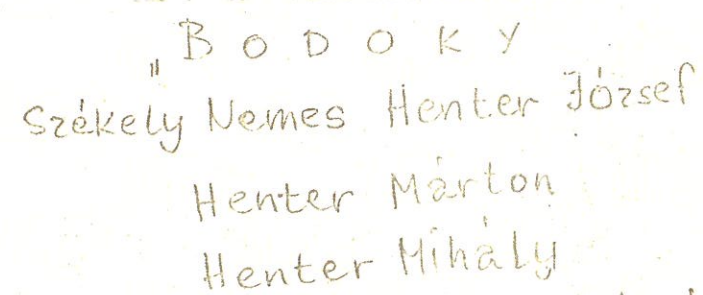 „B O D O K Y
Székely Nemes Henter József
Henter Márton
Henter Mihály